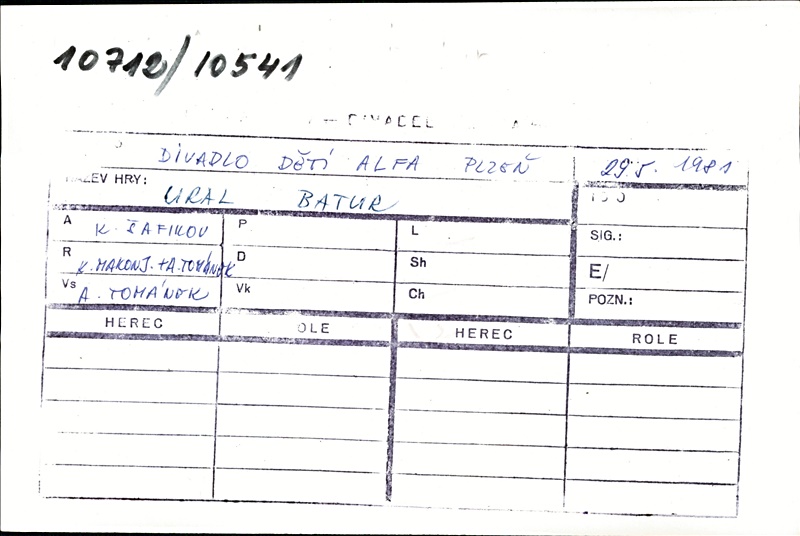 10712/10541
DIVADEL
DIVADLO DĚTÍ ALFA PLZEŇ 29.5. 1981
NÁZEV HRY:
URAL BATUR
A K. ŠAFIKOV P L SIG.:
R K. MAKONJ. + A. TOMÁNEK D Sh E/
Vs A. TOMÁNEK Vk Ch POZN.:
HEREC OLE HEREC ROLE